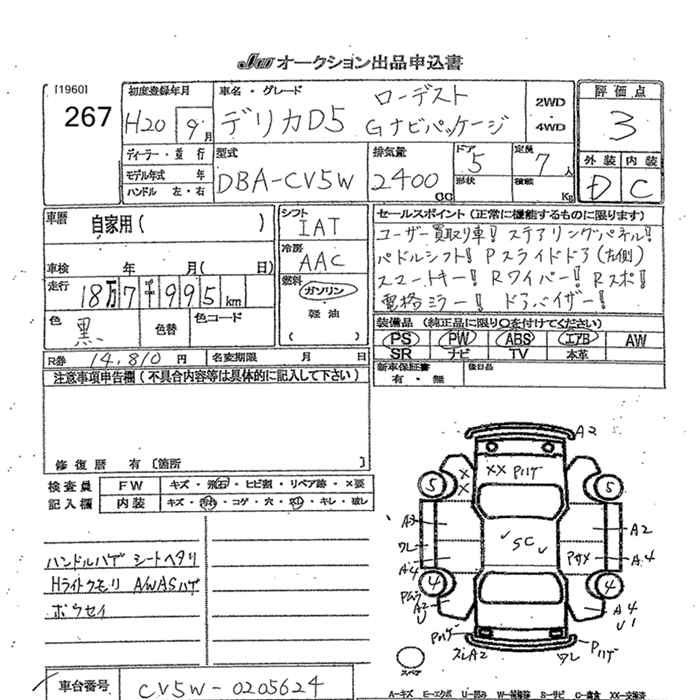 JU オークション出品申込書
[1960]
267
初度登録年月
H20 9月
車名・グレード
デリカD5
ローデスト
Gナビパッケージ
2WD
4WD
評価点
3
ディーラー・並行
モデル年式 年
ハンドル 左・右
型式
DBA-CV5W
排気量
2400 cc
ドア 5
形状
定員 7人
積載 Kg
外装 内装
D C
車歴
自家用( )
車検 年 月( 日)
走行
18万7千995 km
色
黒
色替
色コード
シフト
IAT
冷房
AAC
燃料
ガソリン
軽油
( )
セールスポイント(正常に機能するものに限ります)
ユーザー買取り車! ステアリングパネル!
パドルシフト! Pスライドドア(左側)
スマートキー! Rワイパー! Rスポ!
電格ミラー! ドアバイザー!
装備品(純正品に限り○を付けてください)
PS PW ABS エアB AW
SR ナビ TV 本革
新車保証書
有・無
後日品
R券 14,810円
名変期限 月 日
注意事項申告欄(不具合内容等は具体的に記入して下さい)
修復歴 有 [箇所 ]
検査員
記入欄
FW キズ・飛石・ヒビ割・リペア跡・×要
内装 キズ・汚れ・コゲ・穴・スレ・キレ・破レ
ハンドルハゲ シートヘタリ
Hライトクモリ A/WASハゲ
ボウセイ
車台番号
CV5W-0205624
A2
×× Pハゲ
××
5
5
A3
A2
ワレ
SC
Pサメ
A4
A4
4
4
A2
U
A4
U1
Pハゲ
スレA2
ワレ
Pハゲ
スペア
A-キズ E-エクボ U-凹み W-補修跡 S-サビ C-腐食 XX-交換済